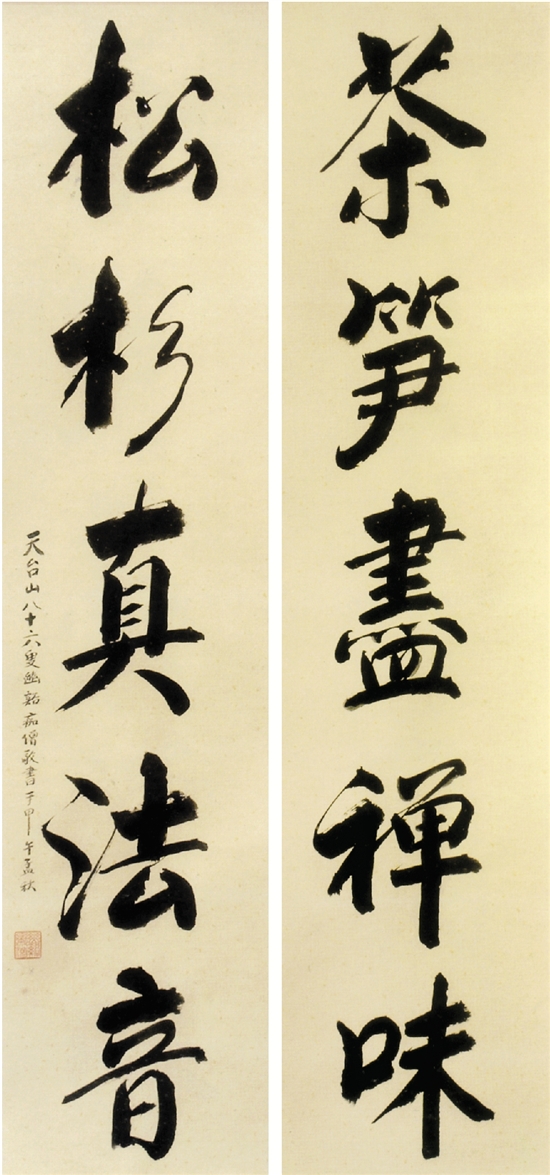 茶笋盡禅味
松杉真法音
天台山八十六叟幽谿痴僧敬書于甲午孟秋